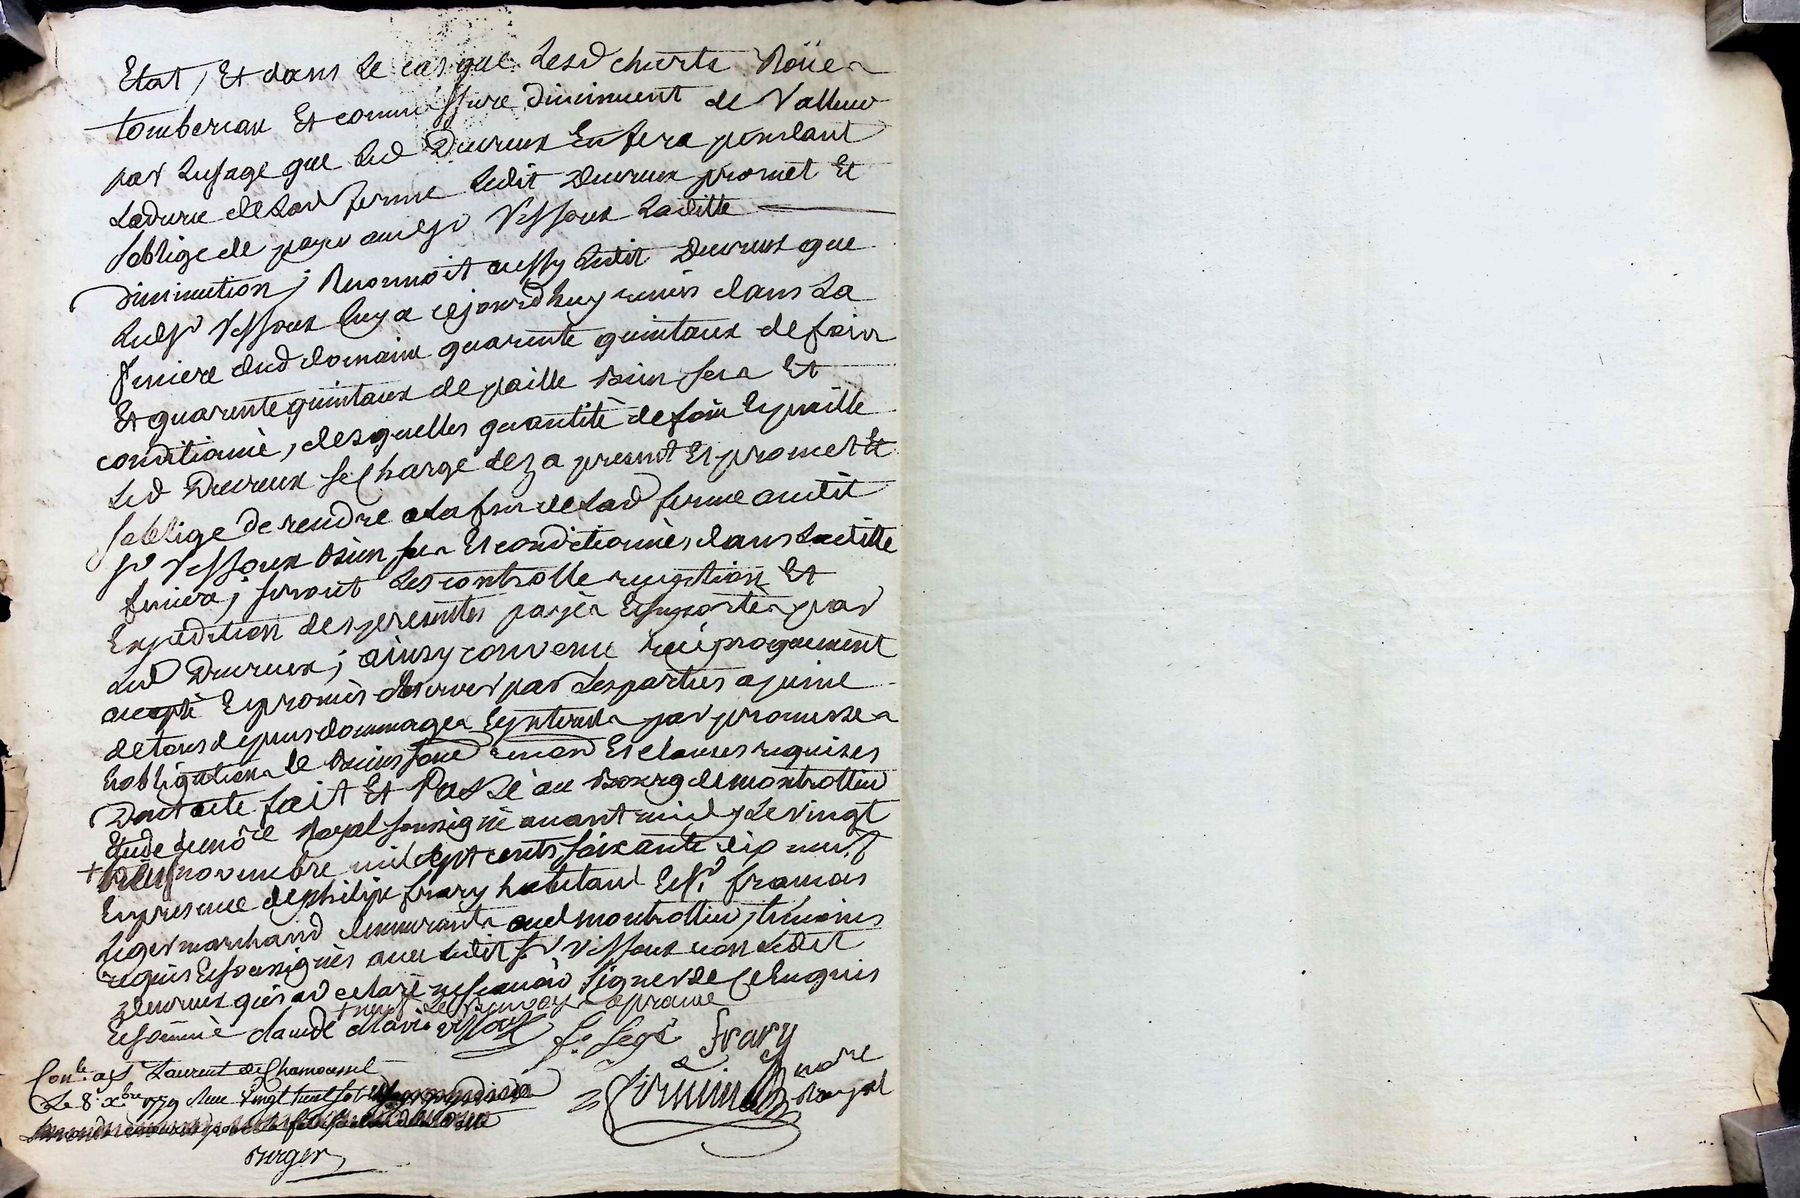 Etat, Et dans le cas que lesd charte Roües
tombereau Et comme ssure diminuent de Valleur
par lusage que led Ducreux En fera pendant
La durée de Lad ferme Ledit Ducreux promet Et
soblige de payer aud sr Vessoux Laditte
diminution; Reconnoit aussy Ledit Ducreux que
Led sr Vessoux luy a cejourdhuy remis dans La
feniere dud domaine quarente quintaux de foin
Et quarente quintaux de paille bien secs Et
conditionné, desquelles quantité de foin Et paille
Led Ducreux se Charge dez a present Et promet Et
soblige de rendre a La fin de Lad ferme audit
sr Vessoux bien secs Et conditionnés dans Laditte
feniere; seront Les controlle reception Et
Expedition des presentes payés Et supportés par
Led Ducreux; ainsy convenu reciproquement
accepté Et promis observer par Les parties a peine
de tous depens dommages Et interests par promesses
Et obligations de biens soumission Et clauses requises
Dont acte fait Et Passé au Bourg de montrottier
Etude du nore Royal soussigné avant midy Le vingt
+ novembre mil sept cents soixante dix neuf
En presence de philipe frary habitant Et sr francois
Leger marchand demeurants aud montrottier, témoins
requis Et soussignés avec Ledit sr Vessoux non Ledit
Ducreux qui a declaré ne scavoir signer de ce Enquis
Et sommé
+ neuf Le renvoy approuvé
claude marie vessoux fs Leger frary
Conlé a St Laurent de Chamousset
Le 8e xbre 1779 Reçu vingt huit sols
nore Royal
Burger